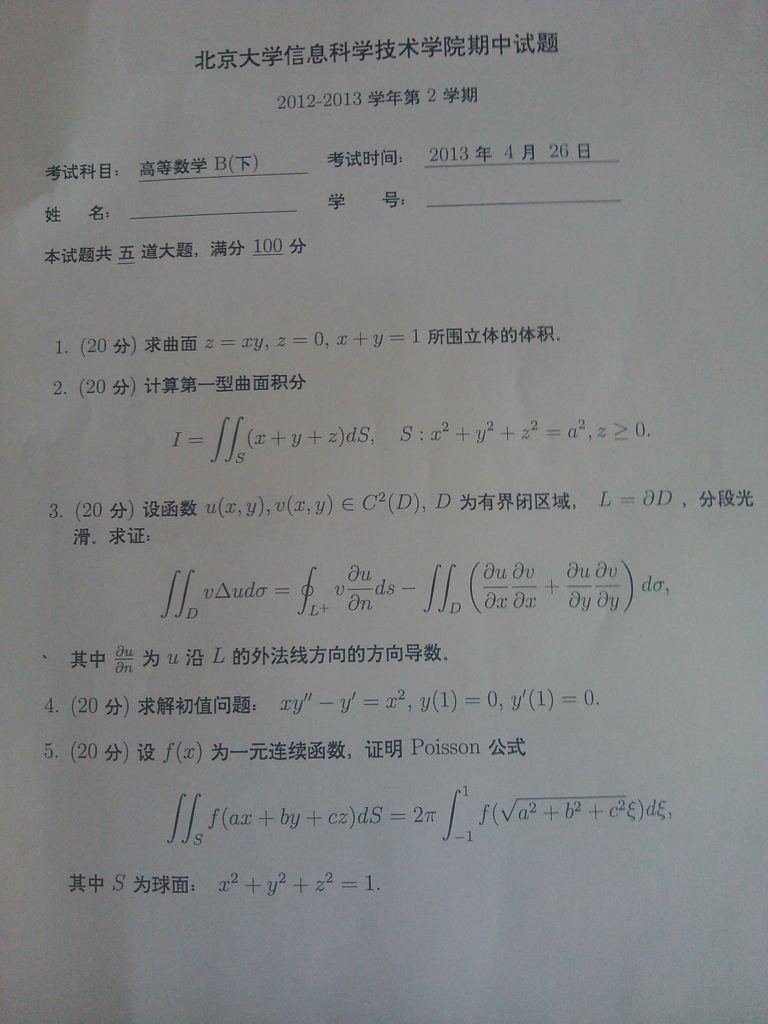 北京大学信息科学技术学院期中试题
2012-2013 学年第 2 学期
考试科目： 高等数学 B(下) 考试时间： 2013 年 4 月 26 日
姓 名： 学 号：
本试题共 五 道大题，满分 100 分
1. (20 分) 求曲面 z = xy, z = 0, x + y = 1 所围立体的体积。
2. (20 分) 计算第一型曲面积分
I = ∬_S (x + y + z)dS, S : x² + y² + z² = a², z ≥ 0.
3. (20 分) 设函数 u(x, y), v(x, y) ∈ C²(D), D 为有界闭区域， L = ∂D ，分段光
滑。求证：
∬_D vΔudσ = ∮_{L⁺} v ∂u/∂n ds − ∬_D (∂u/∂x ∂v/∂x + ∂u/∂y ∂v/∂y) dσ,
其中 ∂u/∂n 为 u 沿 L 的外法线方向的方向导数。
4. (20 分) 求解初值问题： xy″ − y′ = x², y(1) = 0, y′(1) = 0.
5. (20 分) 设 f(x) 为一元连续函数，证明 Poisson 公式
∬_S f(ax + by + cz)dS = 2π ∫_{−1}^{1} f(√(a² + b² + c²)ξ)dξ,
其中 S 为球面： x² + y² + z² = 1.